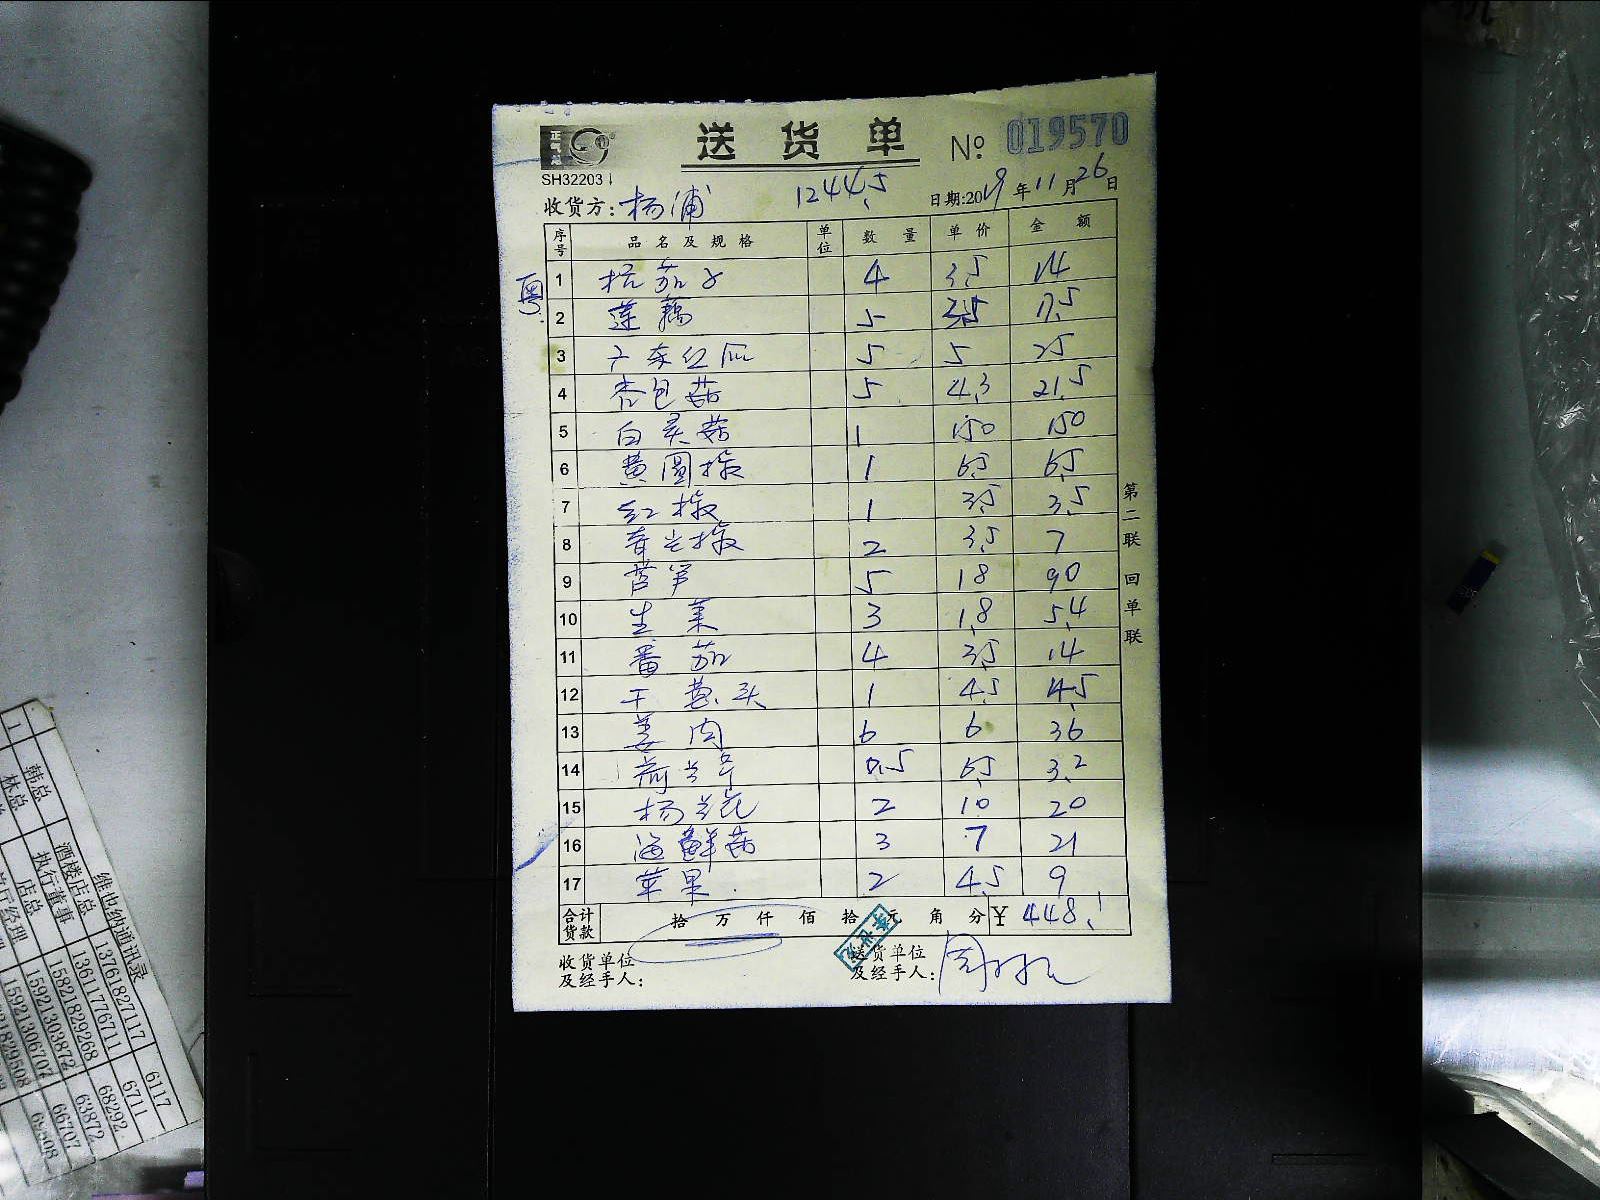 正气
送 货 单 № 019570
SH32203
收货方: 杨浦 1244.5 日期:2019 年 11 月 26 日
序号 品 名 及 规 格 单位 数 量 单 价 金 额
粤
1 杭茄子 4 3.5 14
2 莲藕 5 3.5 17.5
3 广东红瓜 5 5 25
4 杏包菇 5 4.3 21.5
5 白灵菇 1 150 150
6 黄圆椒 1 6.5 6.5
7 红椒 1 3.5 3.5
8 青尖椒 2 3.5 7
9 芦笋 5 18 90
10 生菜 3 1.8 5.4
11 番茄 4 3.5 14
12 干葱头 1 4.5 4.5
13 姜肉 6 6 36
14 荷兰芹 0.5 6.5 3.2
15 杨兰花 2 10 20
16 海鲜菇 3 7 21
17 苹果 2 4.5 9
合计货款 拾 万 仟 佰 拾 元 角 分 ¥ 448.1
收货单位及经手人: 送货单位及经手人:
第二联 回单联
维也纳通讯录
韩总 酒楼店总 13761827117 6117
林总 执行董事 13617776711 6711
店总 15821829268 68292
15921303872 63872
15921306707 66707
69508